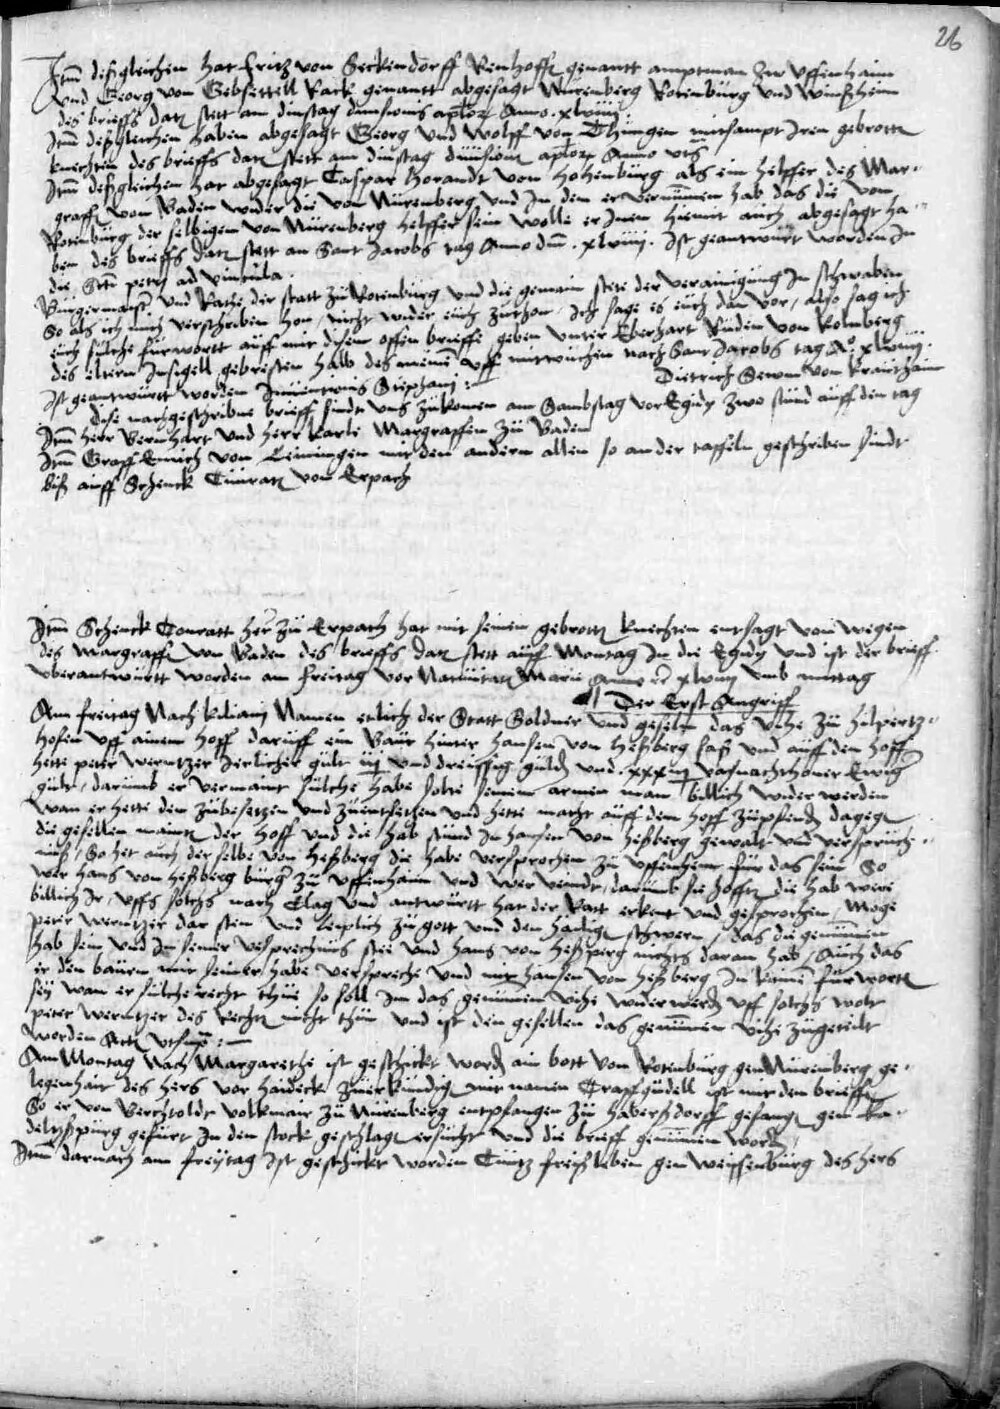 26
Itm̄ deßgleichen hat Fritz von Seckendorff Renhofft genantt amptman zw Vffenhaim
Und Georg von Gebsettell Rack genantt abgesagt Nurenberg Rotenburg vnd Winßheim
des brieffs datz stett am dinstag diuisionis aplor̄ Anno. xlviiij.
Itm̄ deßgleichen haben abgesagt Georg vnd Wolff von Thüngen mitsampt Jren gebrottn
knechten des brieffs datz stett am dinstag diuision aplor̄ Anno vts
Itm̄ deßgleichen hat abgesagt Caspar Horandt von Hohenburg als ein helffer des Mar-
graff von Baden wider die von Nürenberg vnd Jn dem er vernūmen hab das die von
Rotenburg der selbigen von Nürenberg helffer sein wolle er Jnen hiemit auch abgesagt ha-
ben des brieffs datz stett an Sant Jacobs tag Anno dm̄. xlviiij. Ist geantwürt worden Jn
die Sctī petrj ad vincula.
Burgermaist vnd Rathe der statt zu Rotenburg vnd die gemain stete der verainigung Jn schwaben
So als ich mich verschriben hon, nicht wider euch zuthon. Jch sage es euch dan vor, also sag ich
euch sülche fürwortt auff mit disem offen brieffe geben vnter Eberhart Rüden von Kolnberg
des eltern Jnsigell gebresten halb des meinē vff mitwuchen nach Sant Jacobs tag Aᵒ. xlviiij.
Ist geantwurtt worden Jnuentionis Stephanj: Dietrich Sewm von Krauthaim
Dise nachgeschribne brieff sindt vns zukomen am Sambstag vor Egidy zwo stund auff den tag
Itm̄ herr Bernhart vnd herr Karle Margraffen zu Baden
Itm̄ Graff Emich von Leiningen mit den andern allen so an der taffeln geschriben sindt
biß auff Schenck Cunratz von Erpach
Itm̄ Schenck Conratt her zu Erpach hat mit seinen gebrottn knechten entsagt von wegen
des Margraffn von Baden des brieffs datz stett auff Montag Jn die Egidy vnd ist der brieff
vberantwürtt worden am freitag vor Natiuitatz Marie Anno xlviiij vmb mittag
Der Erst Angriff
Am freitag Nach Kilianj Namen etlich der Statt Soldner vnd geselln das Vihe zu Hilpertz-
hofen vff ainem hoff daruff ein Baur hinter Hansen von Heßberg saß vnd auff den hoff
hette peter Werntzer Jerlicher gült iij vnd dreissig guldn vnd. xxxiij vasnachthöner Ewigr
gült, darumb er vermaint sülche habe solte seinem armen man billich wider werden
wan er hette den zubesetzen vnd zuentsetzen vnd hette macht auff dem hoff zupfendn dagegn
die gesellen maintn der hoff vnd die hab stünd Jn Hansen von Heßberg gewalt vnd versprüch-
nuß, So het auch der selbe von Heßberg die habe versprochen zu Vffenheim für das sein So
wer Hans von Heßberg burgr zu Vffenhaim vnd wer veindt, darumb sie hofftn die hab were
billich Jr, Vffs solchs nach Clag vnd antwürtt hat der Ratt erkent vnd gesprochen, Moge
peter Werntzer dar sten vnd leiplich zu gott vnd den hailign schwern, das die genumen
hab sein vnd Jn seiner versprechnus stee vnd Hans von Heßperg nichts daran hab, Auch das
er den bauren mit seiner habe verspreche vnd mit Hansen von Heßberg Jn kainē fürwortn
sey wan er sülche recht thue so soll Jm das genumen vihe widerwerdn vff solchs wolt
peter Werntzer des Rechtn nicht thun vnd ist den gesellen das genūmen vihe zugeteilt
worden Actz vtsup̄:—
Am Montag Nach Margarethe ist geschickt wordn ain bott von Rotenburg gen Nürenberg ge-
legenhait des hers vor Haideck zuerkundign mit namen Trapfgüdell ist mit den brieffn
So er von Berchtoldt Volkmair zu Nürenberg entpfangen zu Haberßdorff gefangn gen Ka-
deltzspurg gefürt Jn den stock geschlagn ersucht vnd die brieff genūmen wordn,
Itm̄ darnach am freytag Ist geschickt worden Cuntz freißleben gen Weissenburg des hers